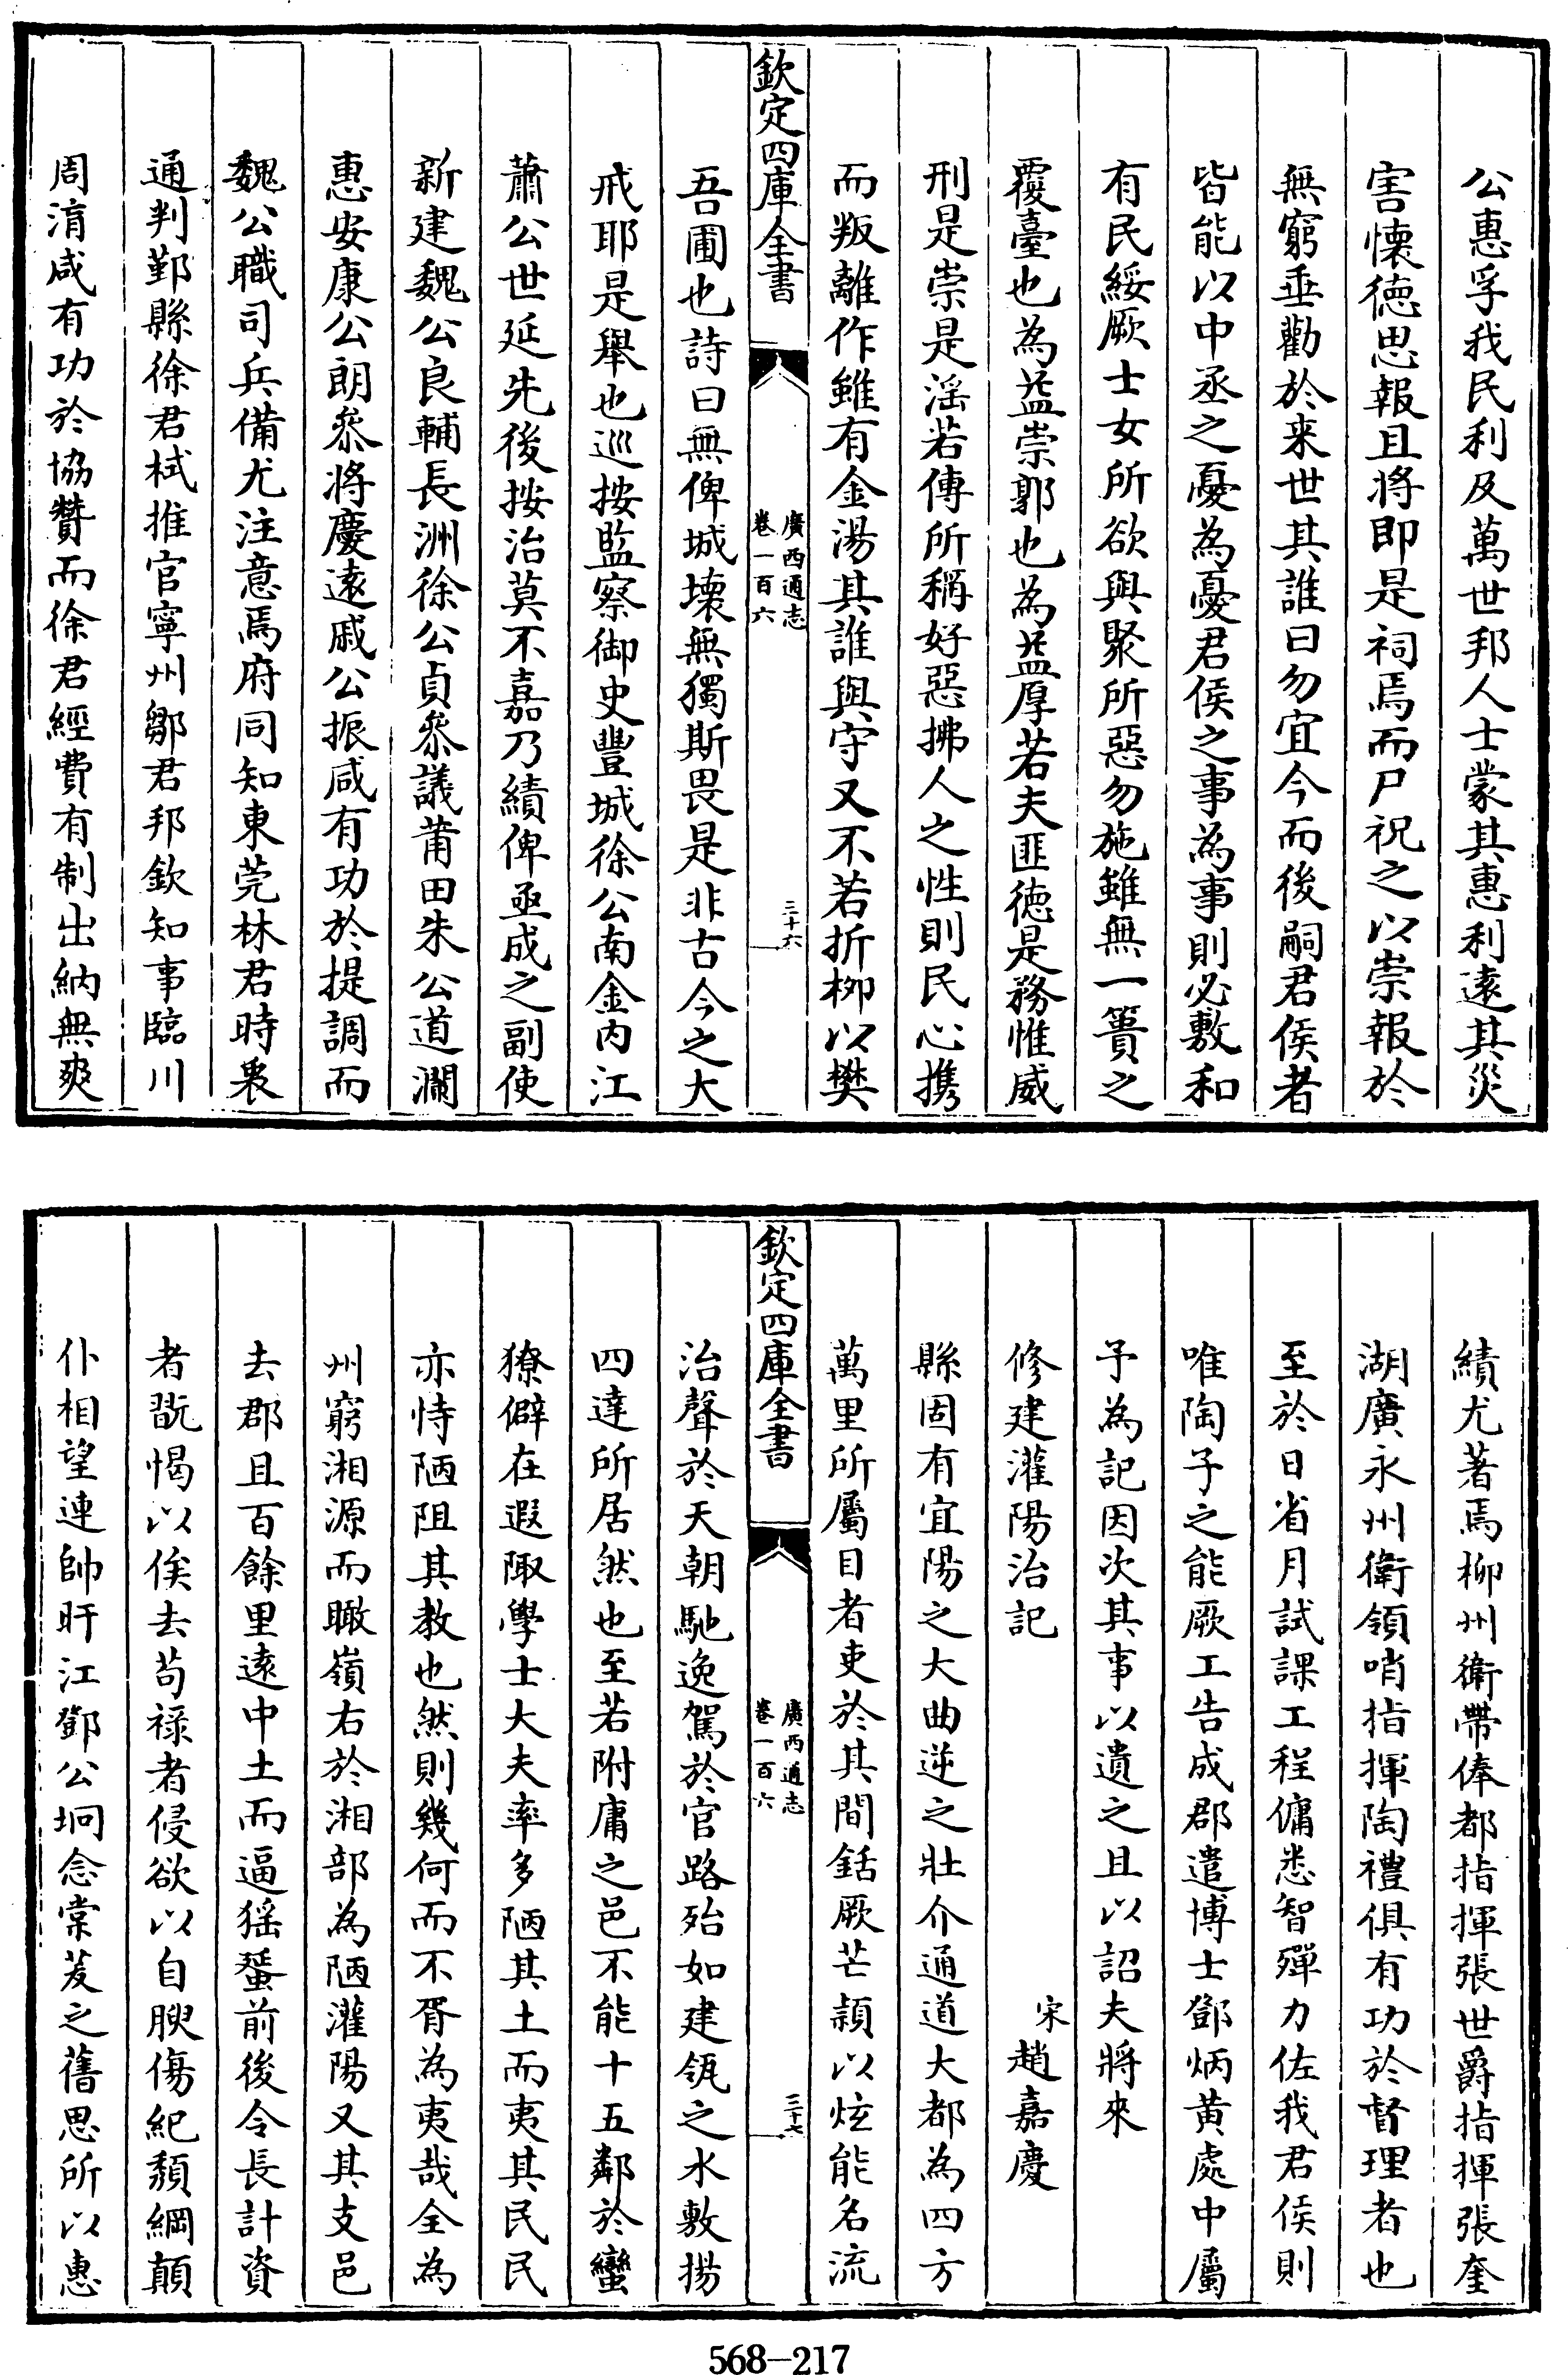 公惠孚我民利及萬世邦人士蒙其惠利逺其災
害懐徳思報且将即是祠焉而尸祝之以崇報於
無窮垂勸於来世其誰曰勿宜今而後嗣君侯者
皆能以中丞之憂為憂君侯之事為事則必敷和
有民綏厥士女所欲與聚所惡勿施雖無一簣之
覆臺也為益崇郭也為益厚若夫匪徳是務惟威
刑是崇是滛若傳所稱好惡拂人之性則民心携
而叛離作雖有金湯其誰與守又不若折栁以樊
欽定四庫全書
廣西通志
卷一百六
三十六
吾圃也詩曰無俾城壊無獨斯畏是非古今之大
戒耶是舉也巡按監察御史豐城徐公南金内江
蕭公世延先後按治莫不嘉乃績俾亟成之副使
新建魏公良輔長洲徐公貞叅議莆田朱公道瀾
惠安康公朗叅将慶逺戚公振咸有功於提調而
魏公職司兵備尤注意焉府同知東莞林君時衷
通判鄞縣徐君栻推官寧州鄒君邦欽知事臨川
周湇咸有功於協贊而徐君經費有制出納無爽
績尤著焉柳州衛帶俸都指揮張世爵指揮張奎
湖廣永州衛領哨指揮陶禮俱有功於督理者也
至於日省月試課工程傭悉智殫力佐我君侯則
唯陶子之能厥工告成郡遣博士鄧炳黄處中屬
予為記因次其事以遺之且以詔夫將來
修建灌陽治記
宋趙嘉慶
縣固有宜陽之大曲逆之壯介通道大都為四方
萬里所屬目者吏於其間銛厥芒頴以炫能名流
欽定四庫全書
廣西通志
卷一百六
三十七
治聲於天朝馳逸駕於官路殆如建瓴之水敷揚
四達所居然也至若附庸之邑不能十五鄰於蠻
獠僻在遐陬學士大夫率多陋其土而夷其民民
亦恃陋阻其教也然則幾何而不胥為夷哉全為
州窮湘源而瞰嶺右於湘部為陋灌陽又其支邑
去郡且百餘里逺中土而逼猺蜑前後令長計資
者翫愒以俟去茍禄者侵欲以自腴傷紀頽綱顛
仆相望連帥盱江鄧公坰念棠茇之舊思所以惠
568-217